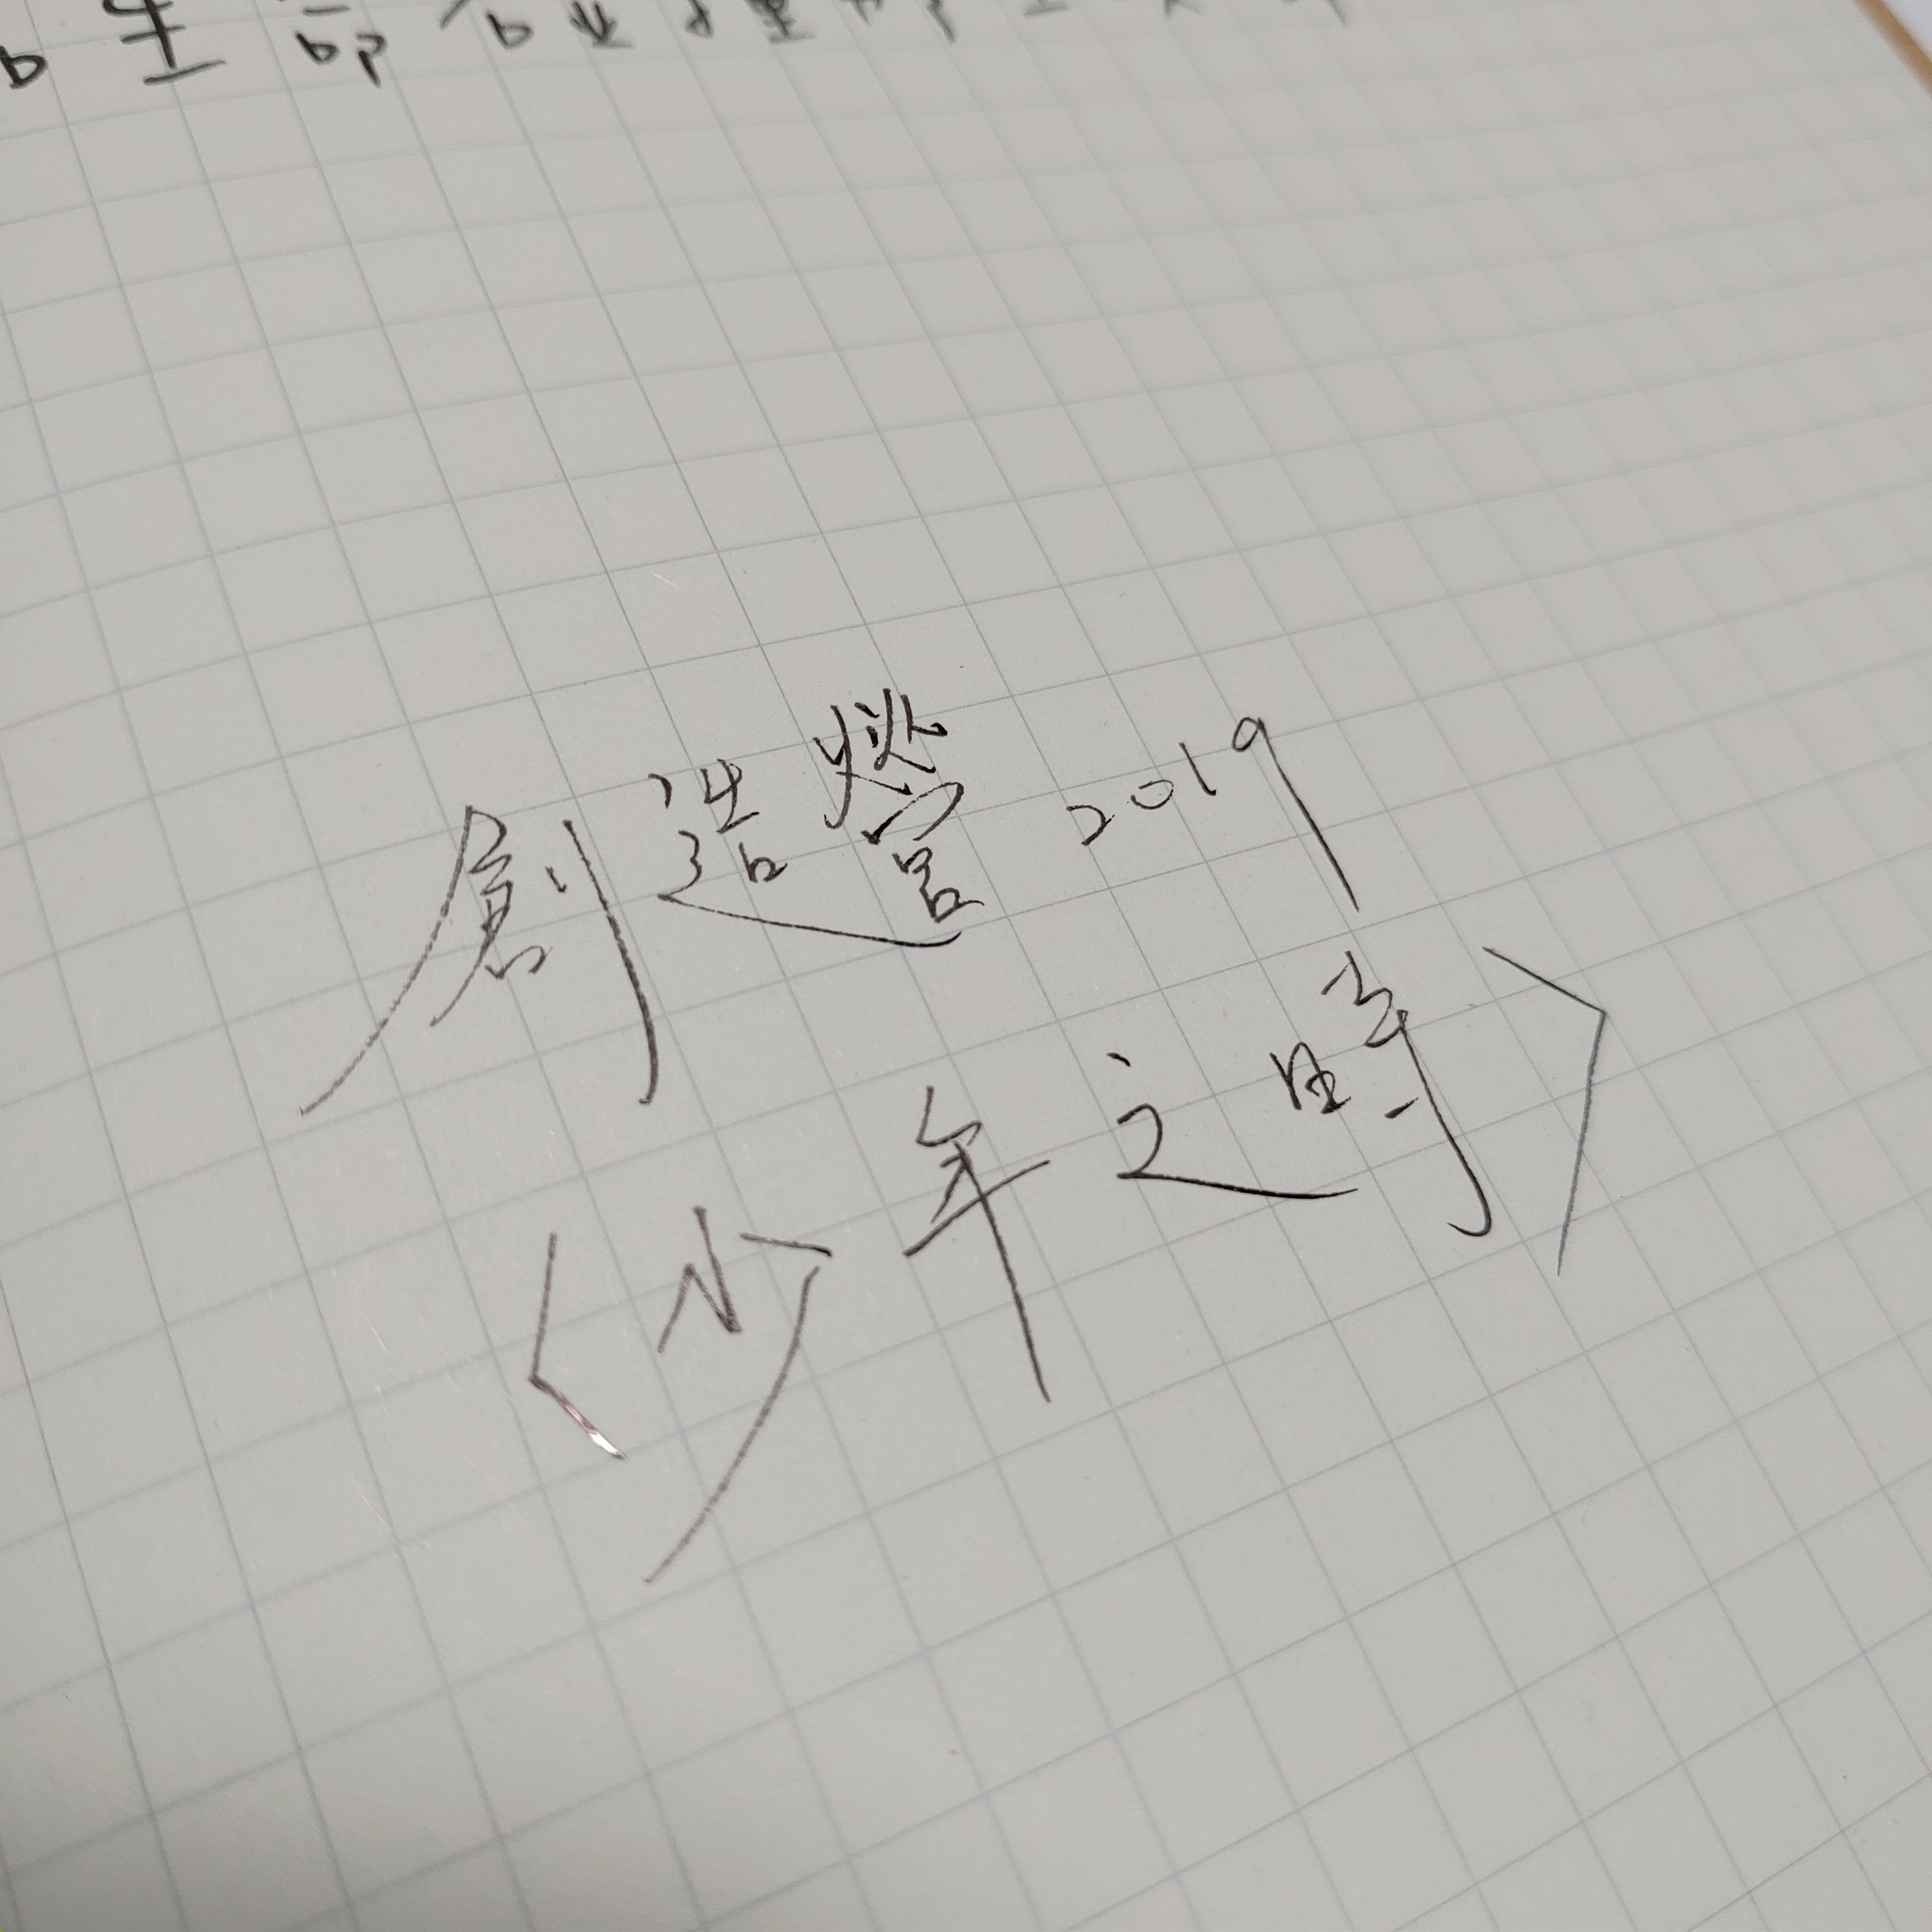 創造營2019
〈少年之時〉